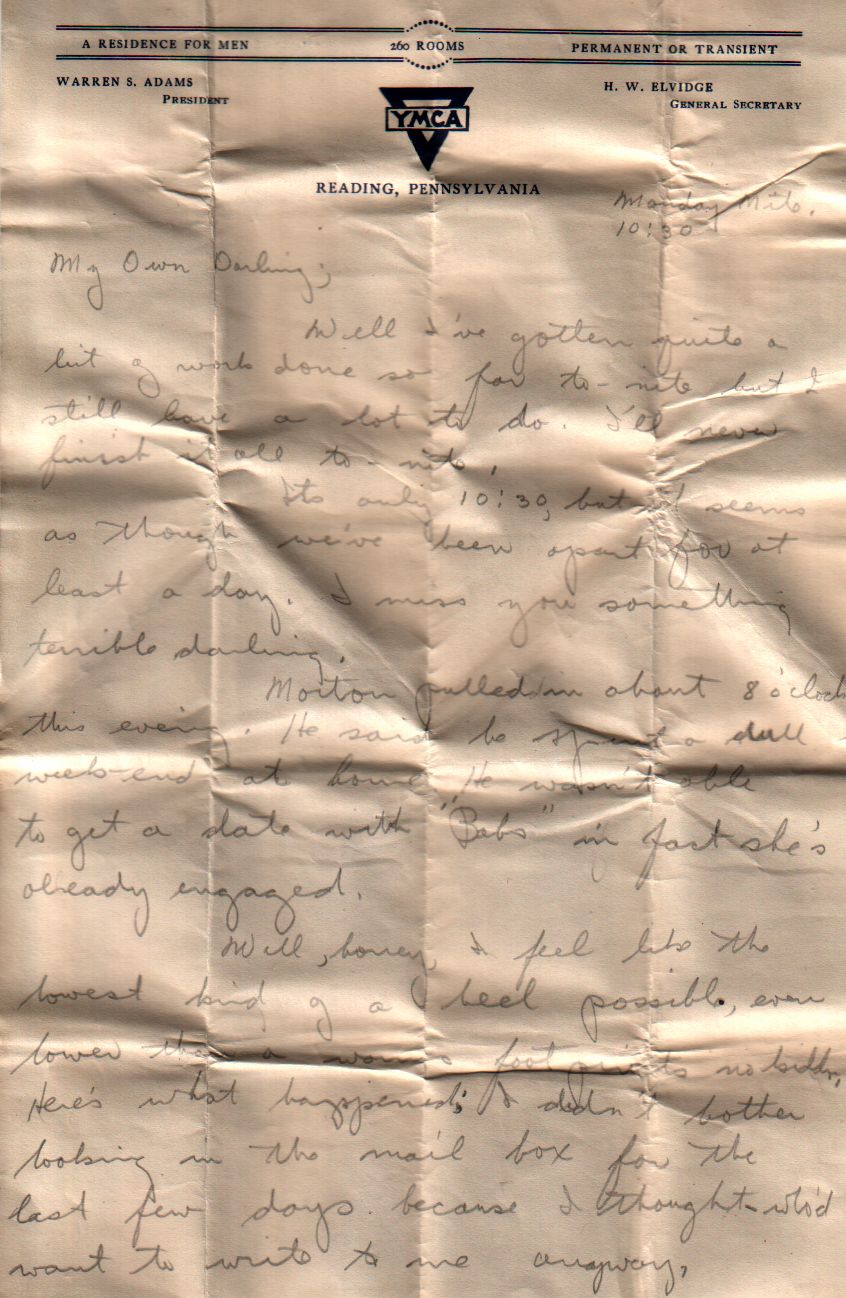 A RESIDENCE FOR MEN 260 ROOMS PERMANENT OR TRANSIENT
WARREN S. ADAMS H. W. ELVIDGE
PRESIDENT GENERAL SECRETARY
YMCA
READING, PENNSYLVANIA
Monday Nite.
10:30
My Own Darling;
Well I've gotten quite a
bit of work done so far to-nite but I
still have a lot to do. I'll never
finish it all to-nite.
Its only 10:30, but it seems
as though we've been apart for at
least a day. I miss you something
terrible darling.
Morton pulled in about 8 o'clock
this evening. He said he spent a dull
week-end at home. He wasn't able
to get a date with "Babs" in fact she's
already engaged.
Well, honey, I feel like the
lowest kind of a heel possible, even
lower than a worms foot prints no kiddn.
Here's what happened; I didn't bother
looking in the mail box for the
last few days because I thought who'd
want to write to me anyway,